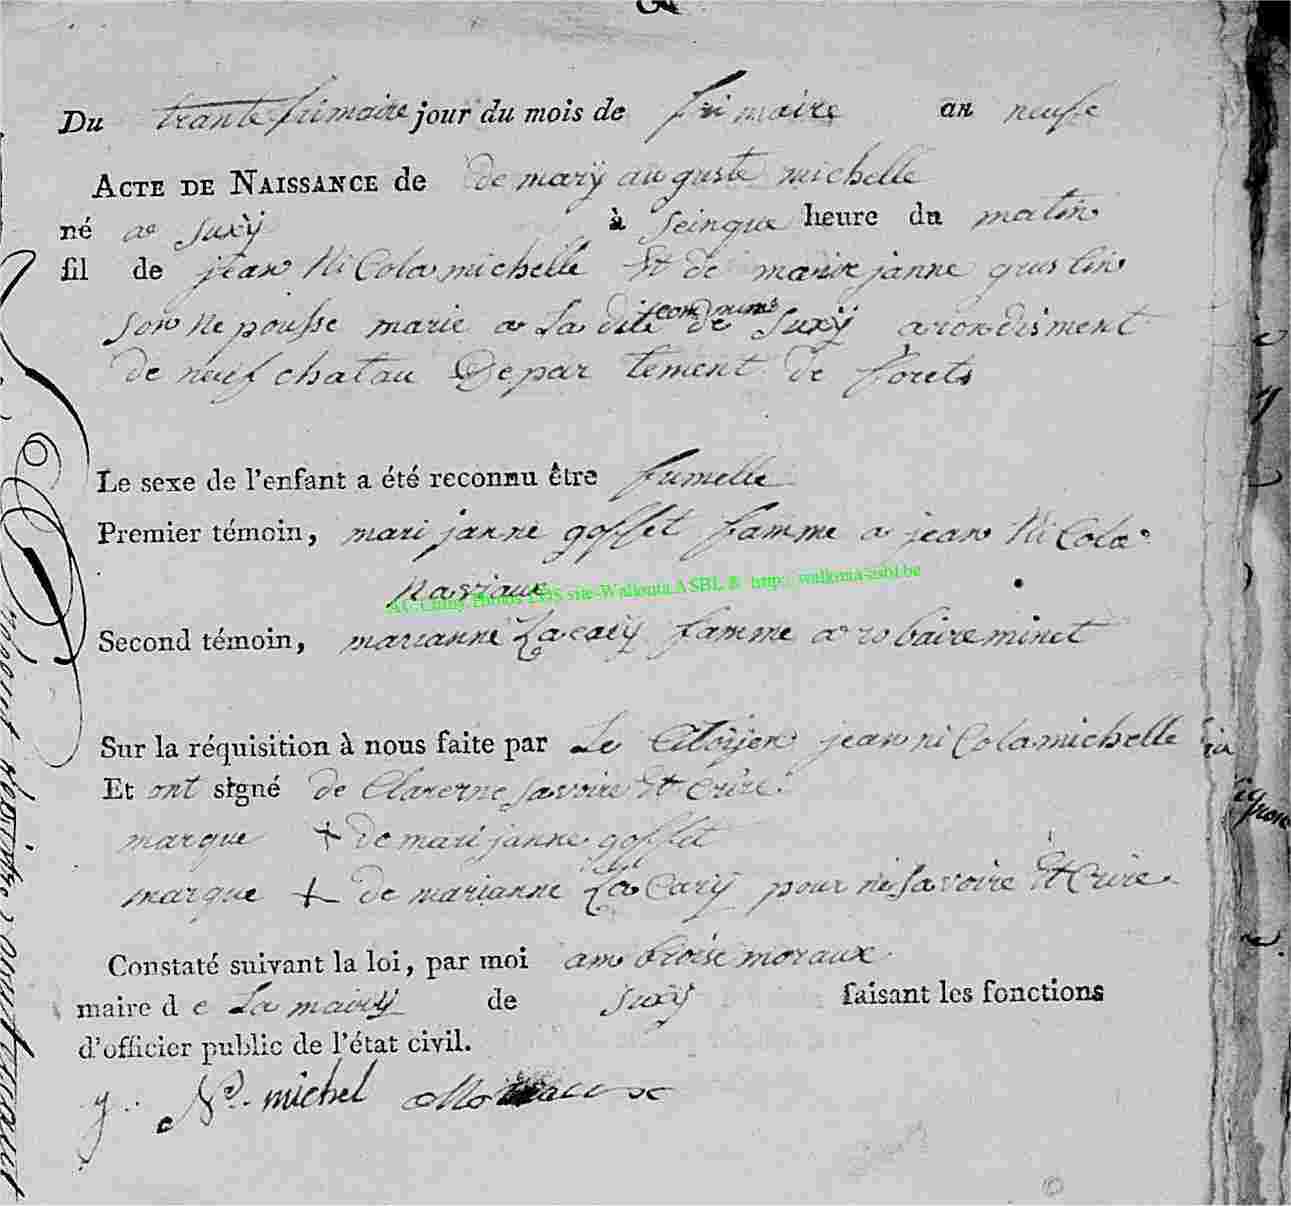 Du trante frimaire jour du mois de frimaire an neufe
ACTE DE NAISSANCE de de mary auguste michelle
né a Suxÿ à Seinque heure du matin
fil de jean Nicola michelle et de marie janne guslin
Son nepousse marie a La dite commune de Suxÿ arondisment
de neuf chatau Depar tement de forets
Le sexe de l'enfant a été reconnu être fumelle
Premier témoin, mari janne goffet famme a jean Nicola
naviaux
AC-Chiny Photos LDS site-Wallonia ASBL & http://wallonia-asbl.be
Second témoin, marianne Lacary famme a robaire minet
Sur la réquisition à nous faite par Le Citoÿen jean nicola michelle
Et ont signé de Clarerne savoire Et Crire
marque + de mari janne goffet
marque + de marianne La Cary pour ne savoire Et Crire
Constaté suivant la loi, par moi ambroise moraux
maire de La mairÿ de Suxÿ faisant les fonctions
d'officier public de l'état civil.
j. Nº. michel Moraux